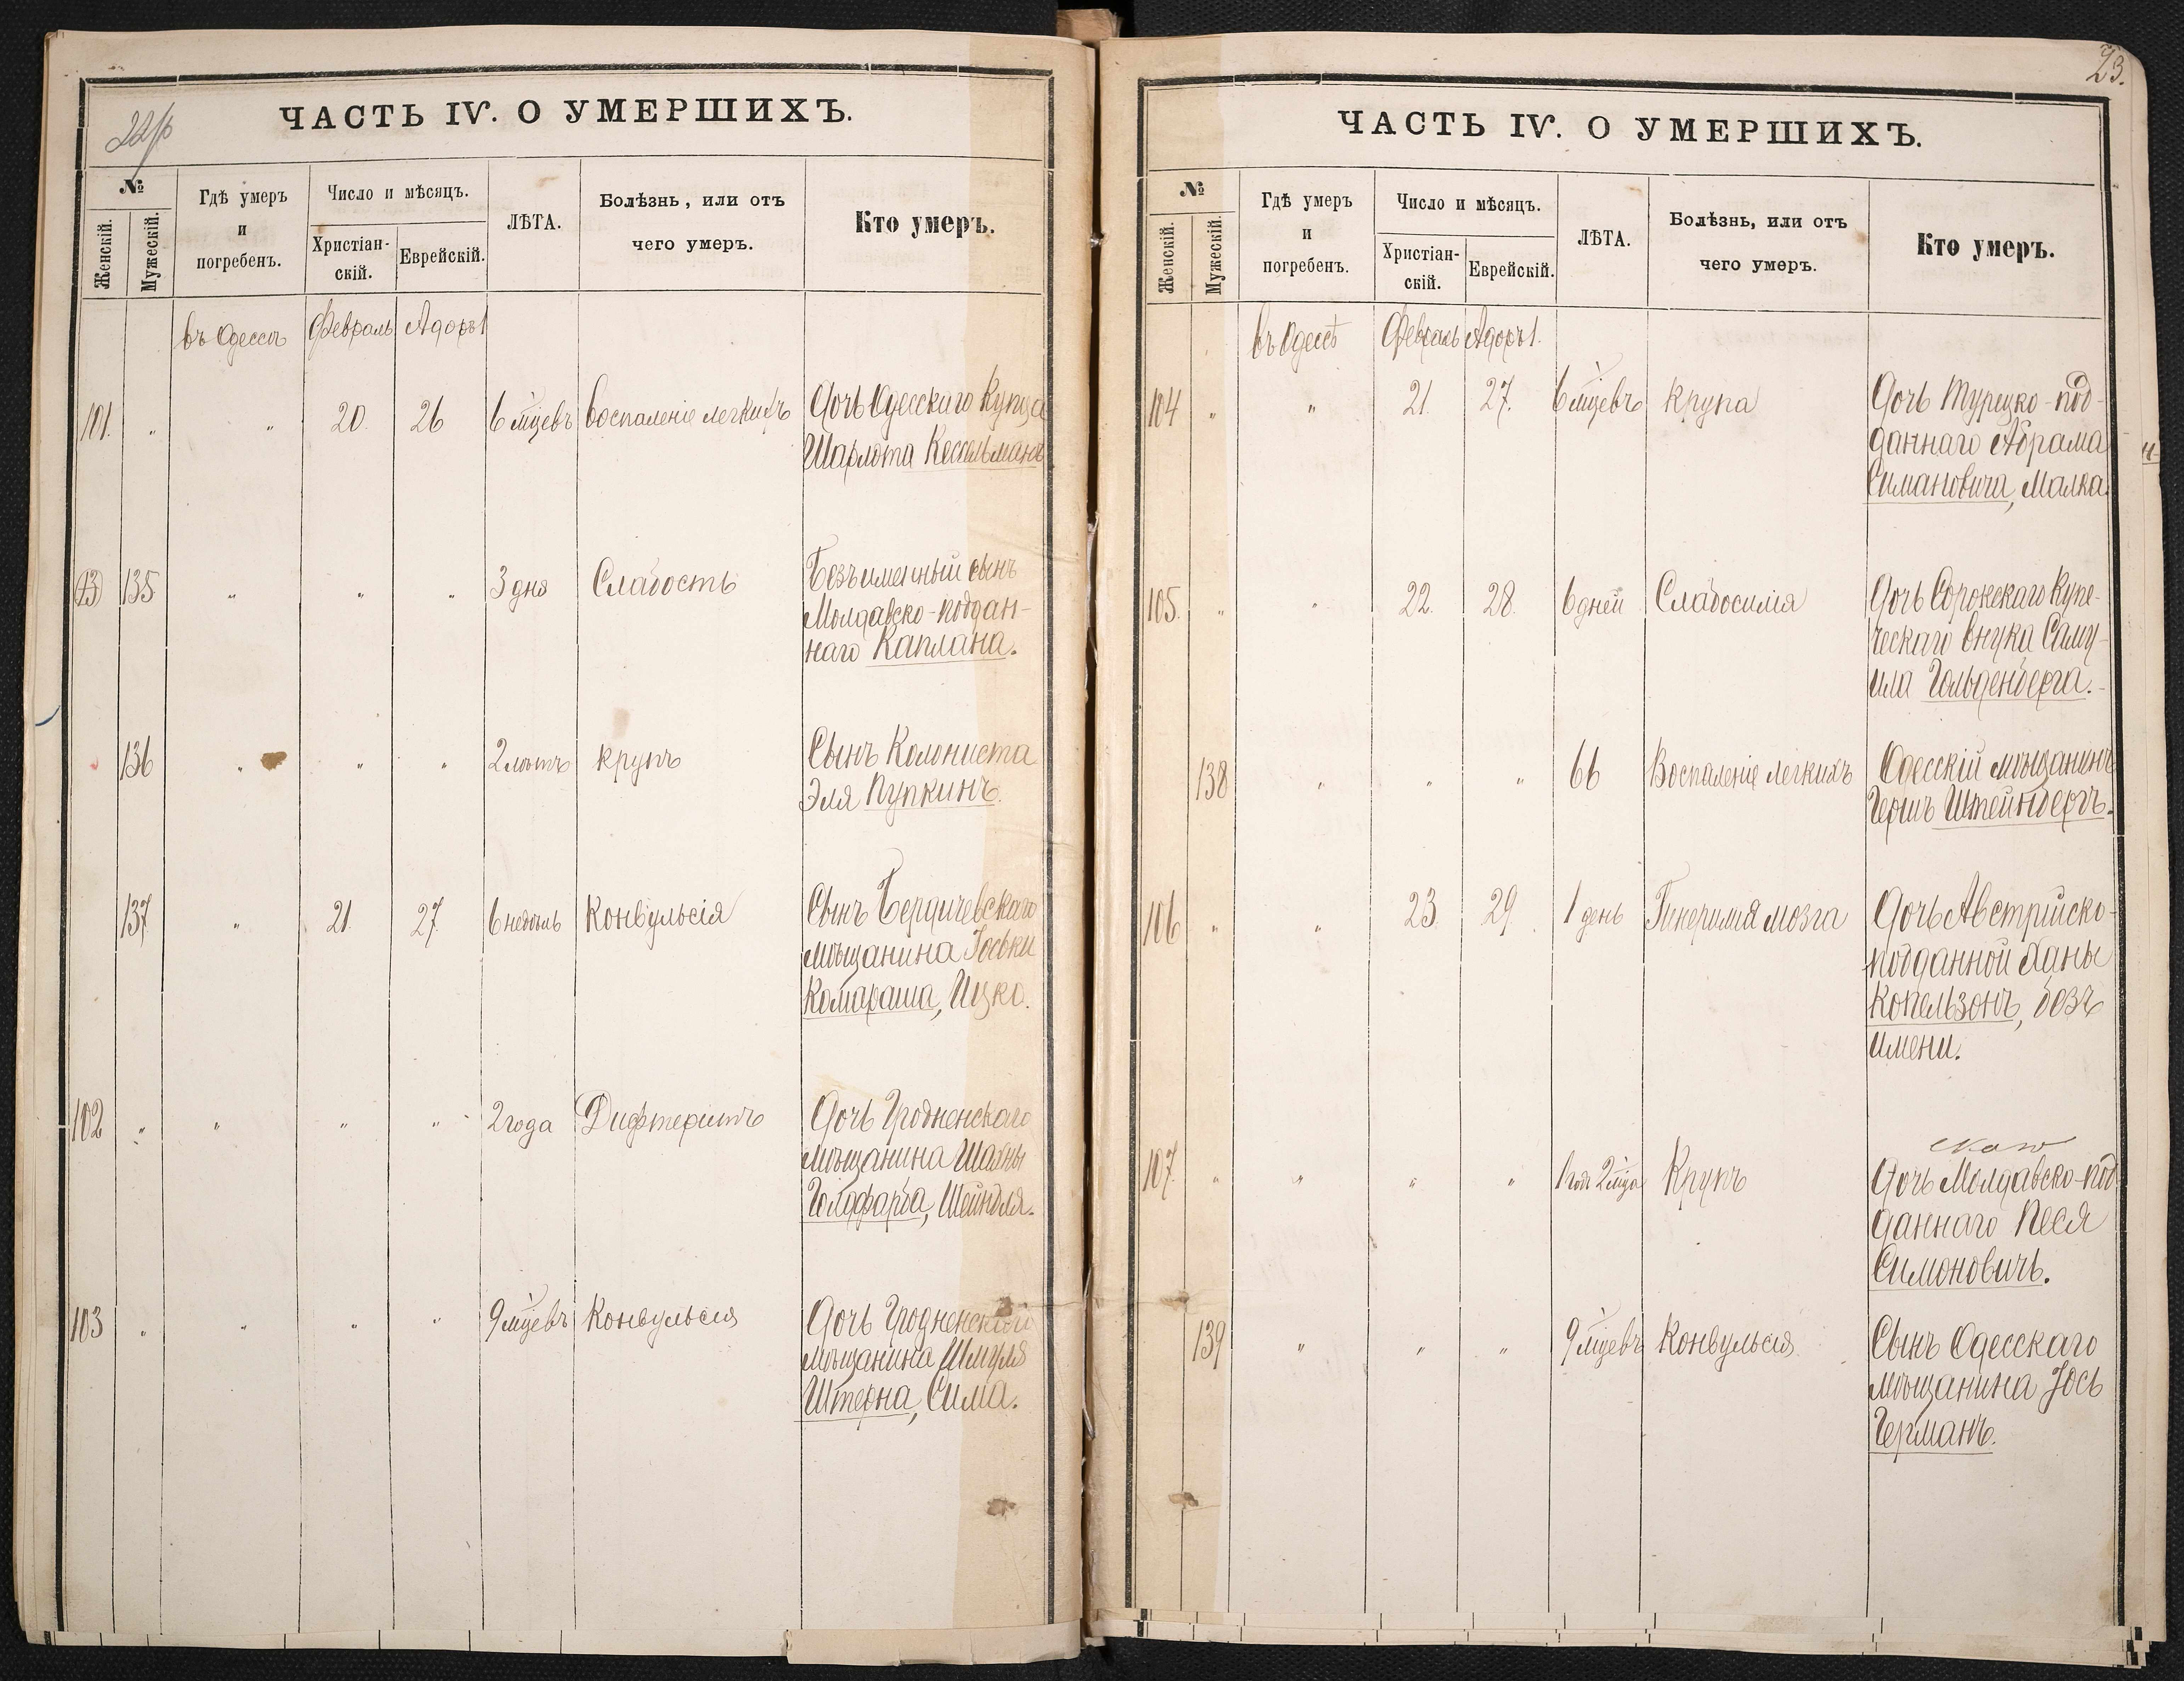 22/р
ЧАСТЬ IV. О УМЕРШИХЪ.
№
Женскій.
Мужескій.
Гдѣ умеръ
и
погребенъ.
Число и мѣсяцъ.
Христіан-
скій.
Еврейскій.
ЛѢТА.
Болѣзнь, или отъ
чего умеръ.
Кто умеръ.
въ Одессѣ Февраль Адоръ 1
101. " " 20. 26 6 мцевъ Воспаленіе легкихъ Дочь Одесскаго Купца
Шарлота Кессельманъ
13 135 " " " 3 дня Слабость Безъименный сынъ
Молдавско-поддан-
наго Каплана.
136 " " " 2 лѣтъ Крупъ Сынъ Колониста
Эля Пупкинъ.
137 " 21. 27. 6 недѣль Конвульсія Сынъ Бердичевскаго
мѣщанина Іоськи
Комараша, Ицко.
102 " " " " 2 года Дифтеритъ Дочь Гродненскаго
мѣщанина Шахны
Голдфарба, Шейндля.
103 " " " " 9 мцевъ Конвульсія Дочь Гродненскаго
мѣщанина Шмуля
Штерна, Сима.
23.
ЧАСТЬ IV. О УМЕРШИХЪ.
№
Женскій.
Мужескій.
Гдѣ умеръ
и
погребенъ.
Число и мѣсяцъ.
Христіан-
скій.
Еврейскій.
ЛѢТА.
Болѣзнь, или отъ
чего умеръ.
Кто умеръ.
въ Одессѣ Февраль Адоръ 1.
104 " " 21. 27. 6 мцевъ Крупа Дочь Турецко-под-
даннаго Абрама
Симановича, Малка.
105. " " 22. 28. 6 дней Слабосилія Дочь Сорокскаго Купе-
ческаго внука Саму-
ила Гольденберга.-
138 " " " 66 Воспаленіе легкихъ Одесскій мѣщанинъ
Гершъ Штейнбергъ.
106 " " 23. 29. 1 день мозга Дочь Австрійско-
подданной Ханы
Копельзонъ, безъ
имени.
107. " " " " 1 годъ 2 мца Крупъ Дочь Молдавско-под
даннаго Песя
Симоновичъ.
139 " " " 9 мцевъ Конвульсія Сынъ Одесскаго
мѣщанина Іось
Германъ.